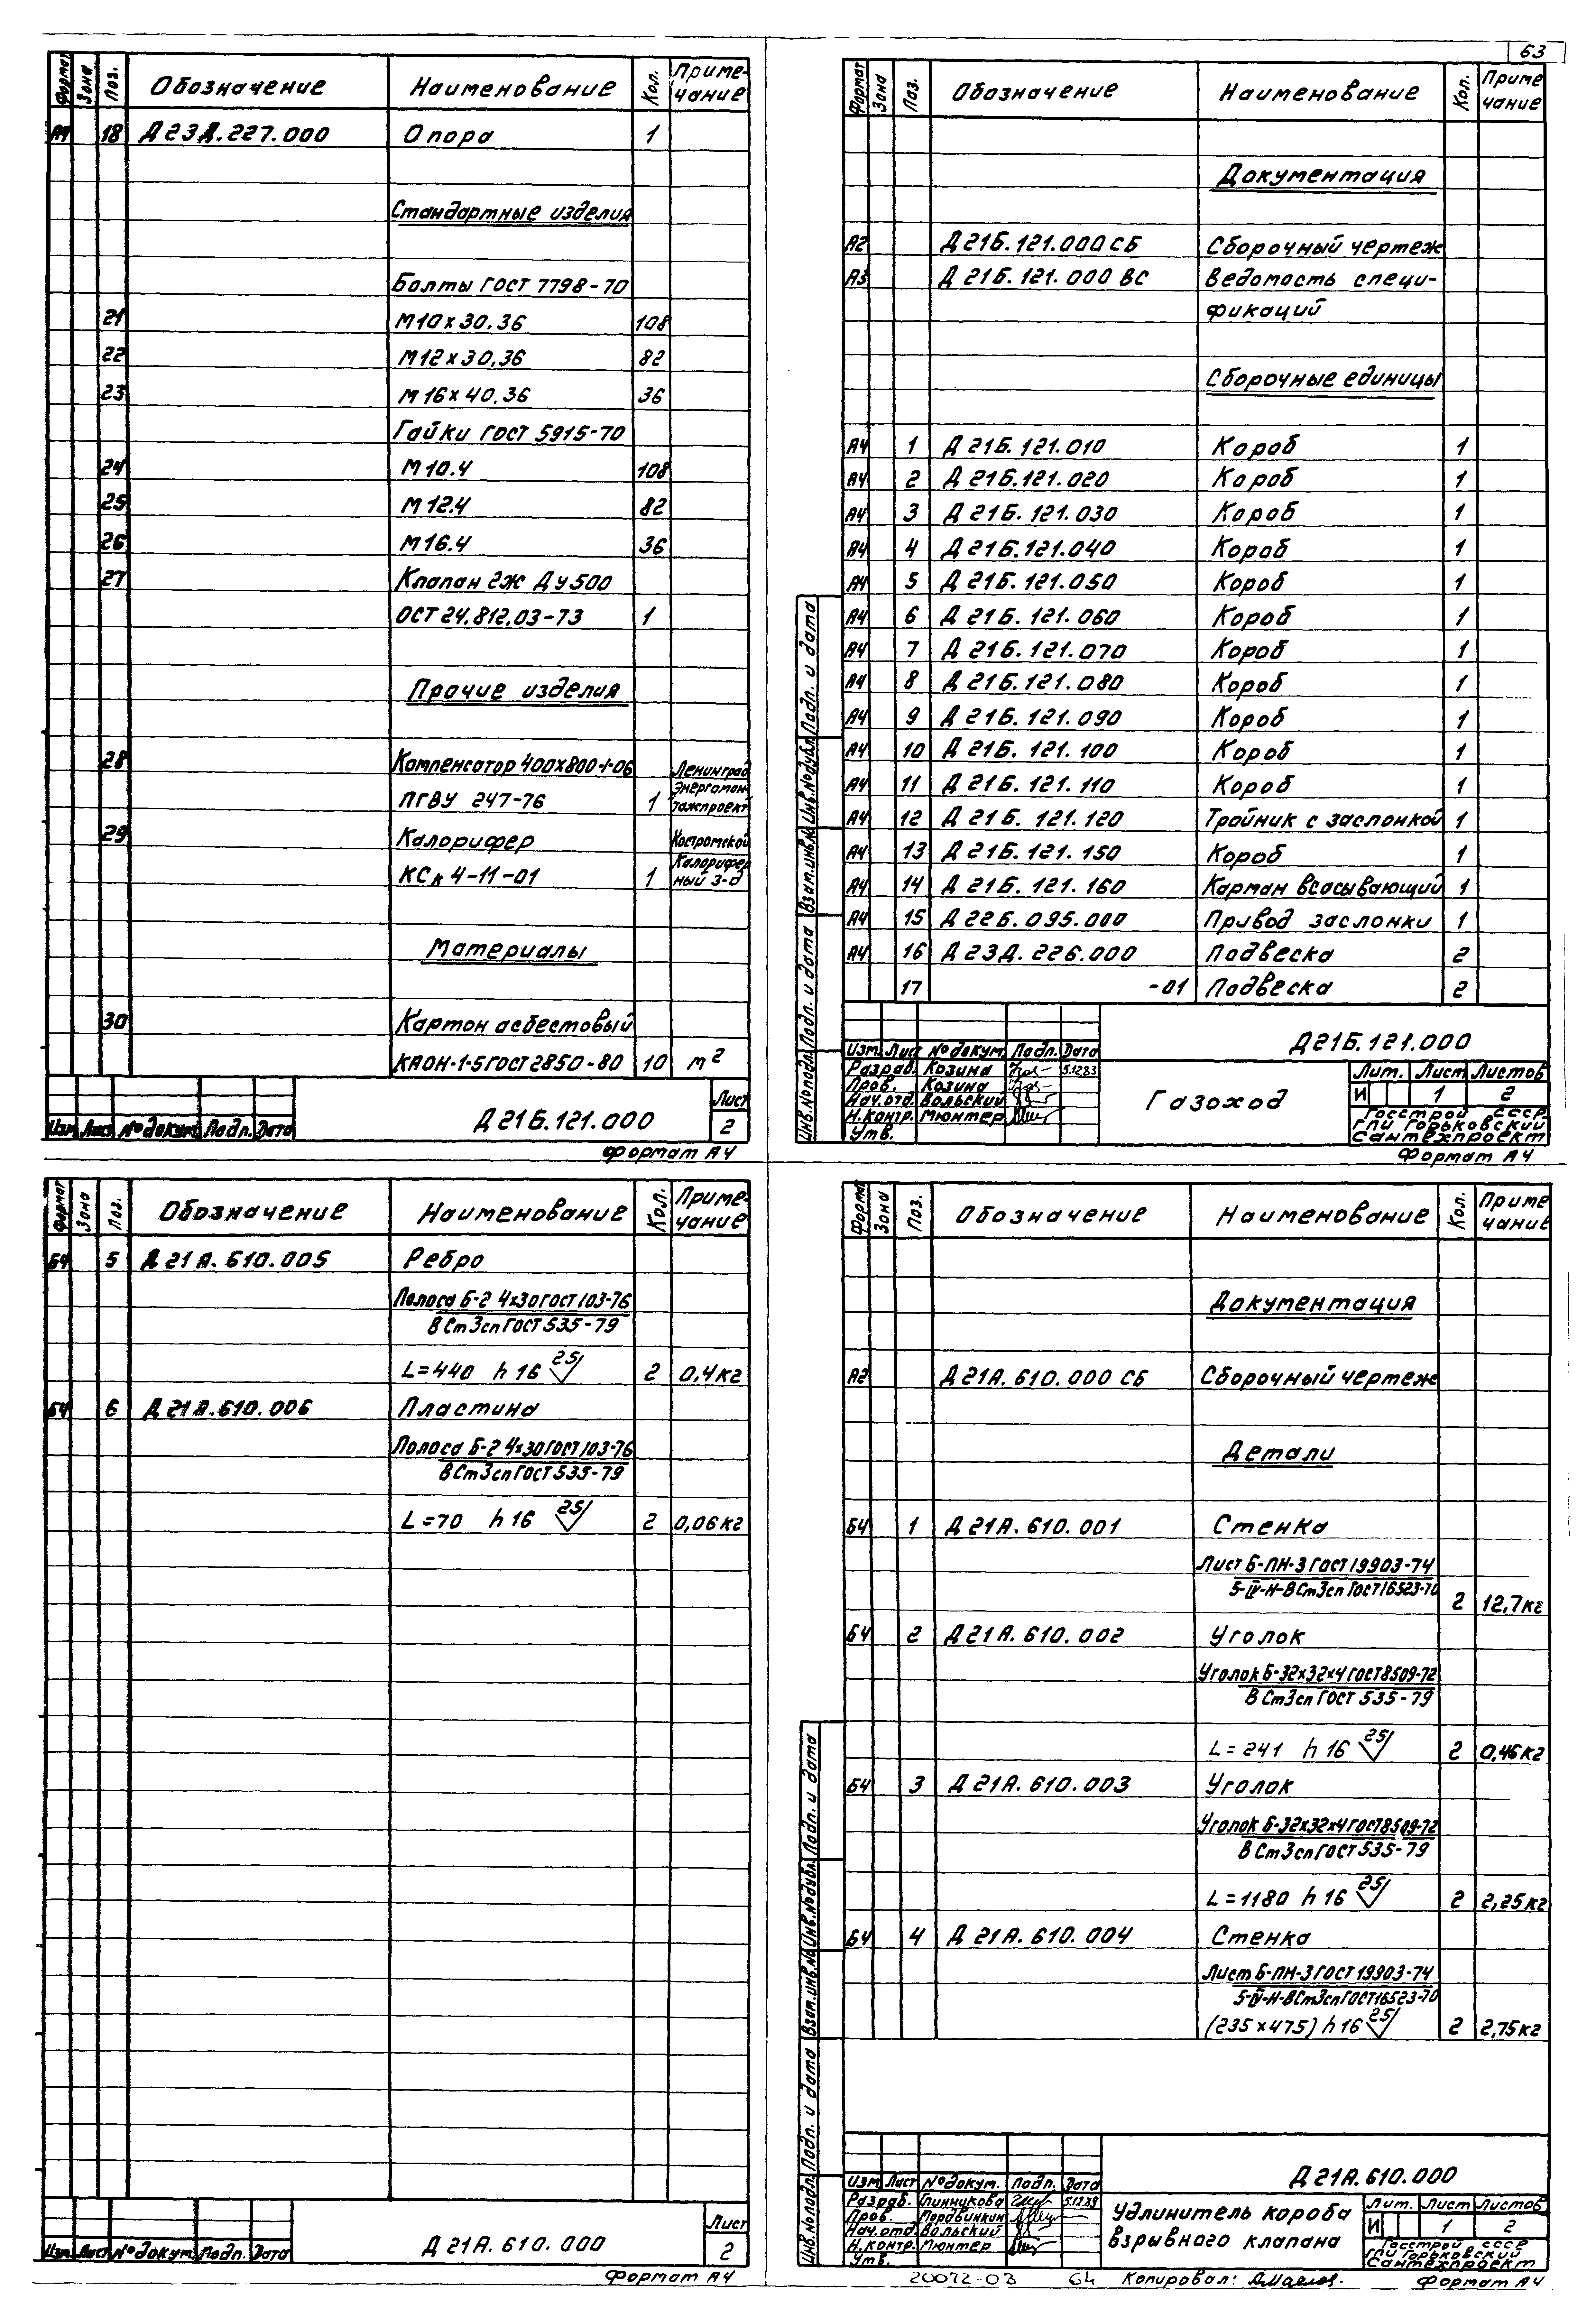 63
Формат Зона Поз. Обозначение Наименование Кол. Приме-
чание
18 Д23Д.227.000 Опора 1
Стандартные изделия
Болты ГОСТ 7798-70
21 М10х30.36 108
22 М12х30,36 82
23 М16х40.36 36
Гайки ГОСТ 5915-70
24 М10.4 108
25 М12.4 82
26 М16.4 36
27 Клапан 2ж Ду500
ОСТ 24.812.03-73 1
Прочие изделия
28 Компенсатор 400х800-1-06 Ленинград
Энергомон-
ПГВУ 247-76 1 тажпроект
29 Калорифер Костромской
Калорифер
КСк 4-11-01 1 ный з-д
Материалы
30 Картон асбестовый
КАОН-1-5 ГОСТ 2850-80 10 м²
Д21Б.121.000 Лист
2
Изм Лист № докум. Подп. Дата
Формат А4
Формат Зона Поз. Обозначение Наименование Кол. Приме
чание
Документация
А2 Д21Б.121.000СБ Сборочный чертеж
А3 Д21Б.121.000 ВС Ведомость специ-
фикаций
Сборочные единицы
А4 1 Д21Б.121.010 Короб 1
А4 2 Д21Б.121.020 Короб 1
А4 3 Д21Б.121.030 Короб 1
А4 4 Д21Б.121.040 Короб 1
А4 5 Д21Б.121.050 Короб 1
А4 6 Д21Б.121.060 Короб 1
А4 7 Д21Б.121.070 Короб 1
А4 8 Д21Б.121.080 Короб 1
А4 9 Д21Б.121.090 Короб 1
А4 10 Д21Б.121.100 Короб 1
А4 11 Д21Б.121.110 Короб 1
А4 12 Д21Б.121.120 Тройник с заслонкой 1
А4 13 Д21Б.121.150 Короб 1
А4 14 Д21Б.121.160 Карман всасывающий 1
А4 15 Д22Б.095.000 Привод заслонки 1
А4 16 Д23Д.226.000 Подвеска 2
17 -01 Подвеска 2
Инв.№подл. Подп. и дата Взам.инв.№ Инв.№дубл. Подп. и дата
Д21Б.121.000
Изм. Лист № докум. Подп. Дата
Разраб. Козина 5.12.83
Пров. Козина
Нач.отд. Вольский
Н.контр. Мюнтер
Утв.
Газоход
Лит. Лист Листов
И 1 2
Госстрой СССР
ГПИ Горьковский
Сантехпроект
Формат А4
Формат Зона Поз. Обозначение Наименование Кол. Приме-
чание
Б4 5 Д21А.610.005 Ребро
Полоса Б-2 4х30 ГОСТ 103-76
ВСт3сп ГОСТ 535-79
L=440 h16 25 2 0,4кг
Б4 6 Д21А.610.006 Пластина
Полоса Б-2 4х30 ГОСТ 103-76
ВСт3сп ГОСТ 535-79
L=70 h16 25 2 0,06кг
Д21А.610.000 Лист
2
Изм. Лист № докум. Подп. Дата
Формат А4
Формат Зона Поз. Обозначение Наименование Кол. Приме
чание
Документация
А2 Д21А.610.000 СБ Сборочный чертеж
Детали
Б4 1 Д21А.610.001 Стенка
Лист Б-ПН-3 ГОСТ 19903-74
5-IV-Н-ВСт3сп ГОСТ 16523-70
2 12,7кг
Б4 2 Д21А.610.002 Уголок
Уголок Б-32х32х4 ГОСТ 8509-72
ВСт3сп ГОСТ 535-79
L=241 h16 25 2 0,46кг
Б4 3 Д21А.610.003 Уголок
Уголок Б-32х32х4 ГОСТ 8509-72
ВСт3сп ГОСТ 535-79
L=1180 h16 25 2 2,25кг
Б4 4 Д21А.610.004 Стенка
Лист Б-ПН-3 ГОСТ 19903-74
5-IV-Н-ВСт3сп ГОСТ 16523-70
(235х475) h16 25 2 2,75кг
Инв.№подл. Подп. и дата Взам.инв.№ Инв.№дубл. Подп. и дата
Д21А.610.000
Изм Лист № докум. Подп. Дата
Разраб. Глинчукова
Пров. Мордвинкин
Нач.отд. Вольский
Н.контр. Мюнтер
Утв.
Удлинитель короба
взрывного клапана
Лит. Лист Листов
И 1 2
Госстрой СССР
ГПИ Горьковский
Сантехпроект
20072-03 64 Копировал: Формат А4